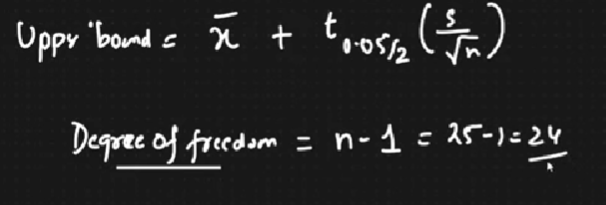 Uppr bound = x̄ + t₀.₀₅/₂ (s/√n)
Degree of freedom = n - 1 = 25-1 = 24